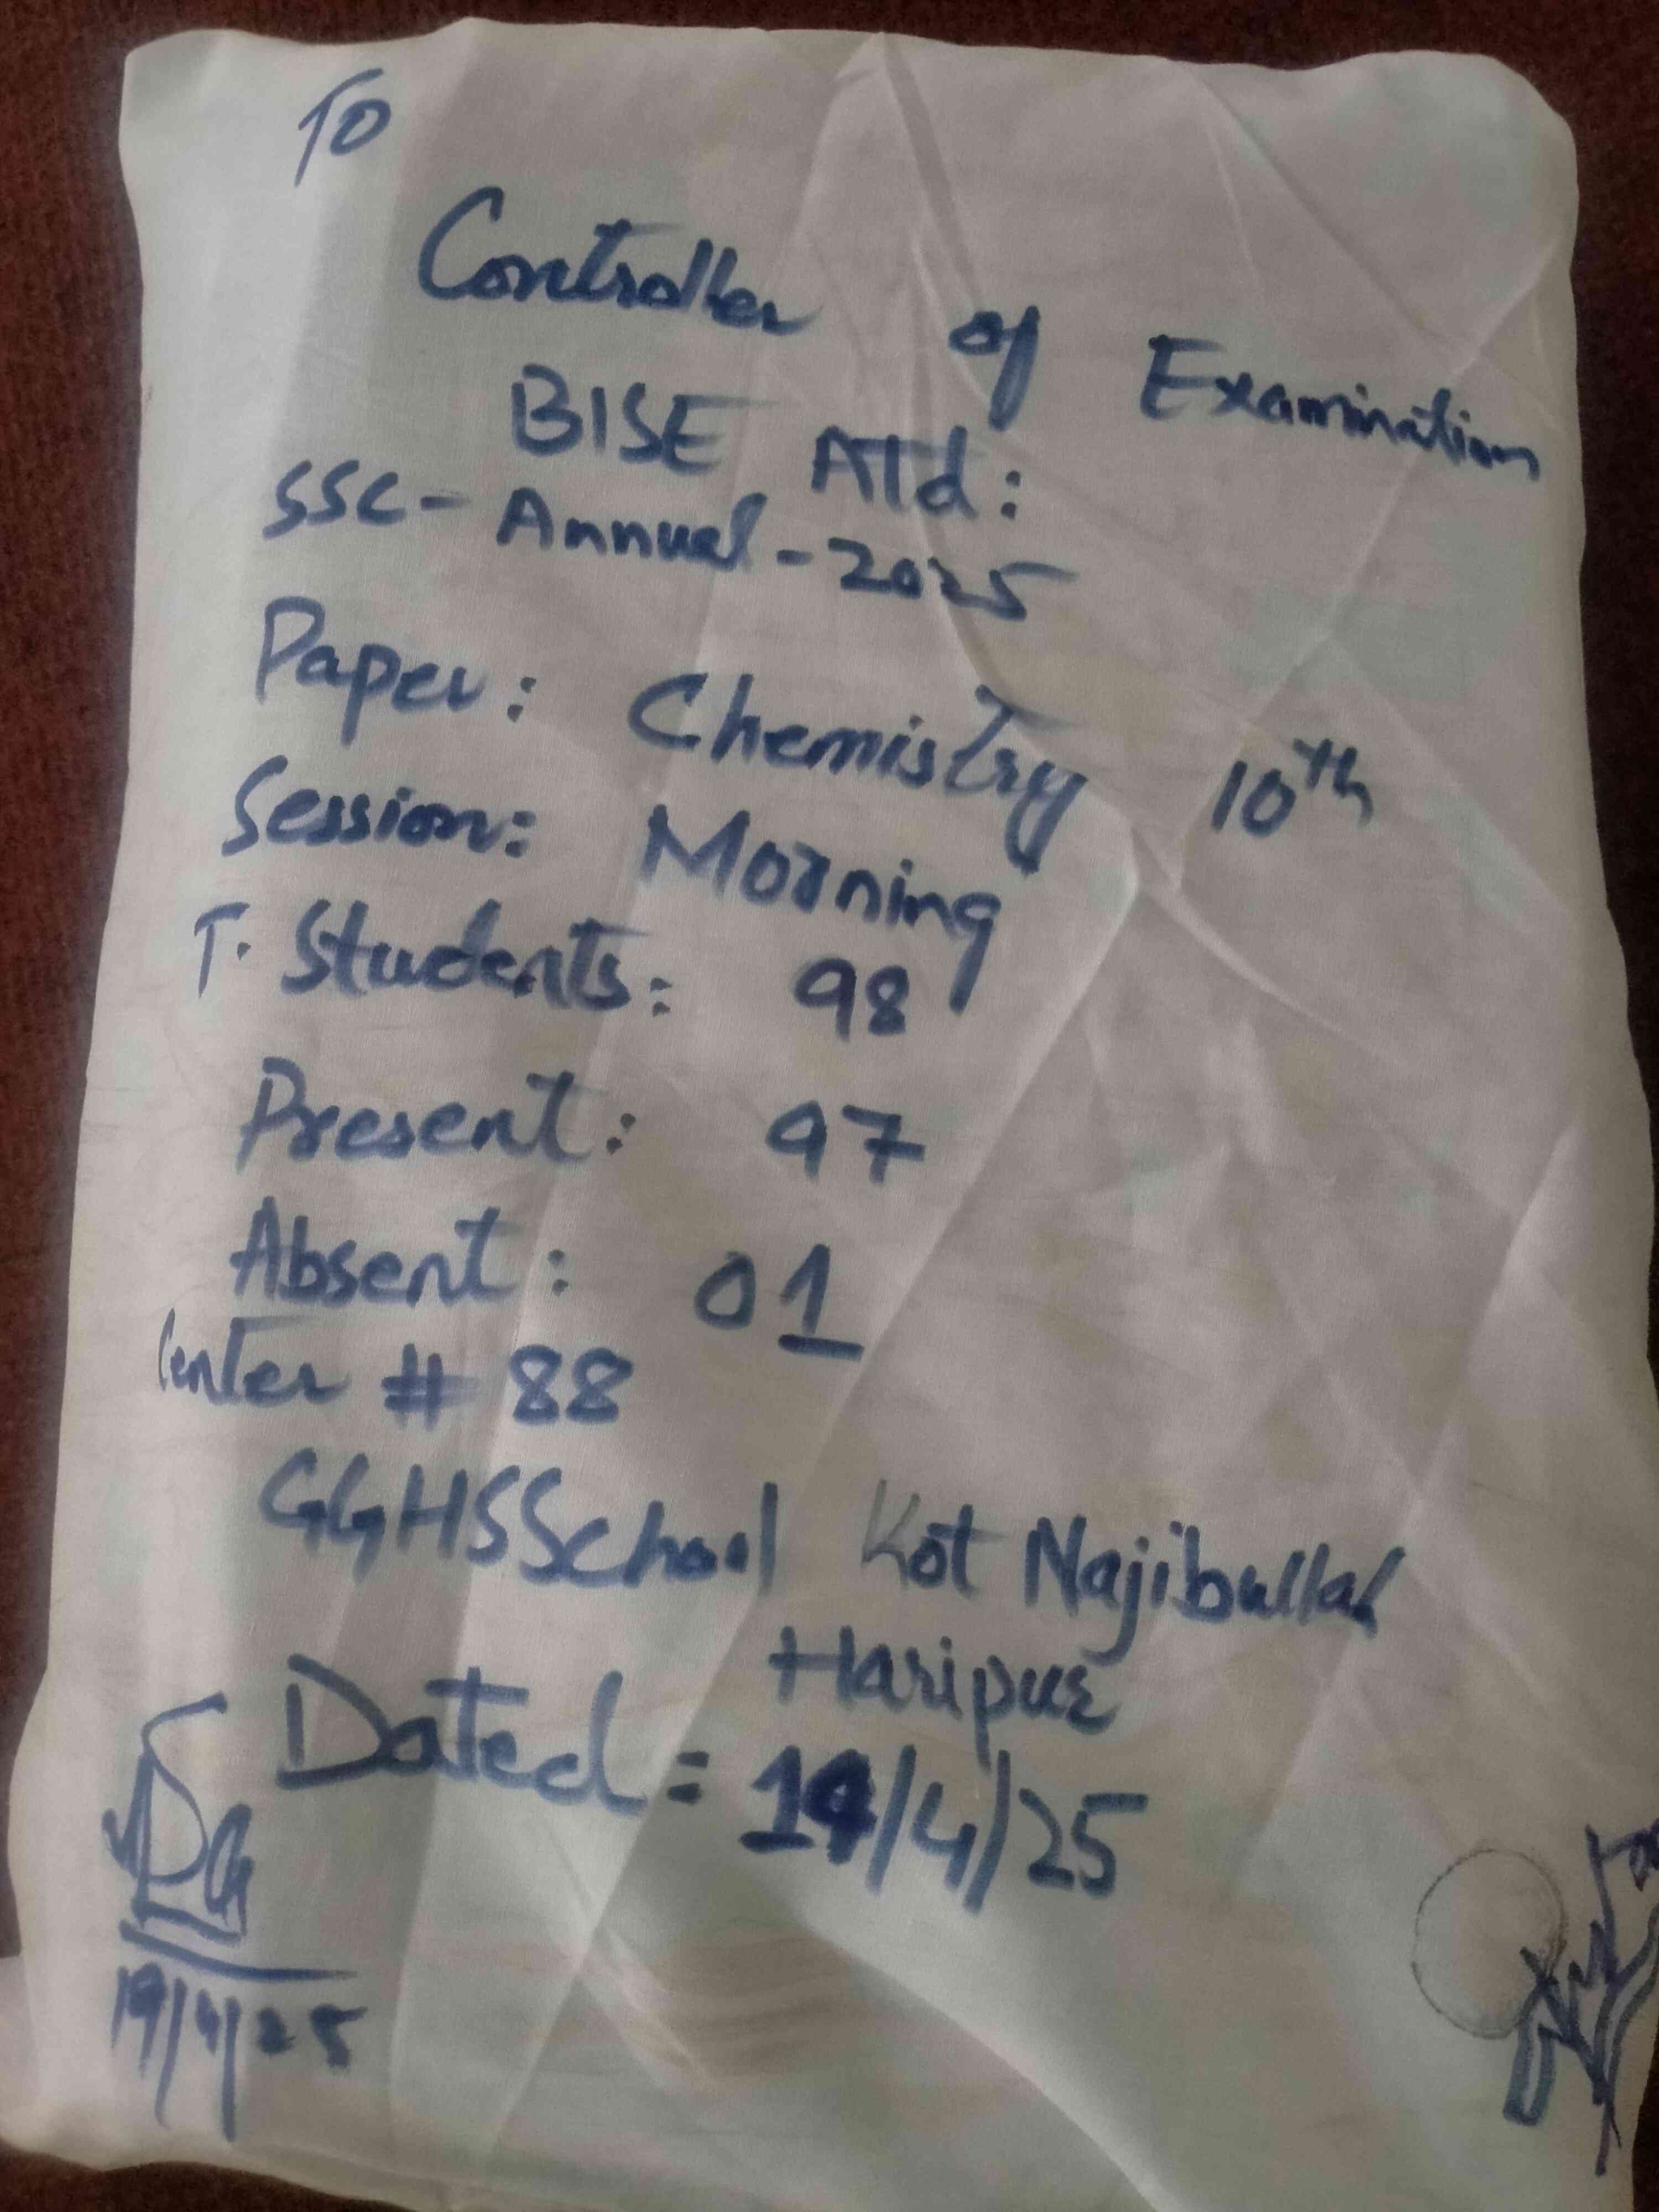 To
Controller of Examination
BISE ATd:
SSC - Annual - 2025
Paper: Chemistry 10th
Session: Morning
T. Students: 98
Present: 97
Absent: 01
Center # 88
GGHSSchool Kot Najibullah
Haripur
Dated = 19/4/25
19/4/25